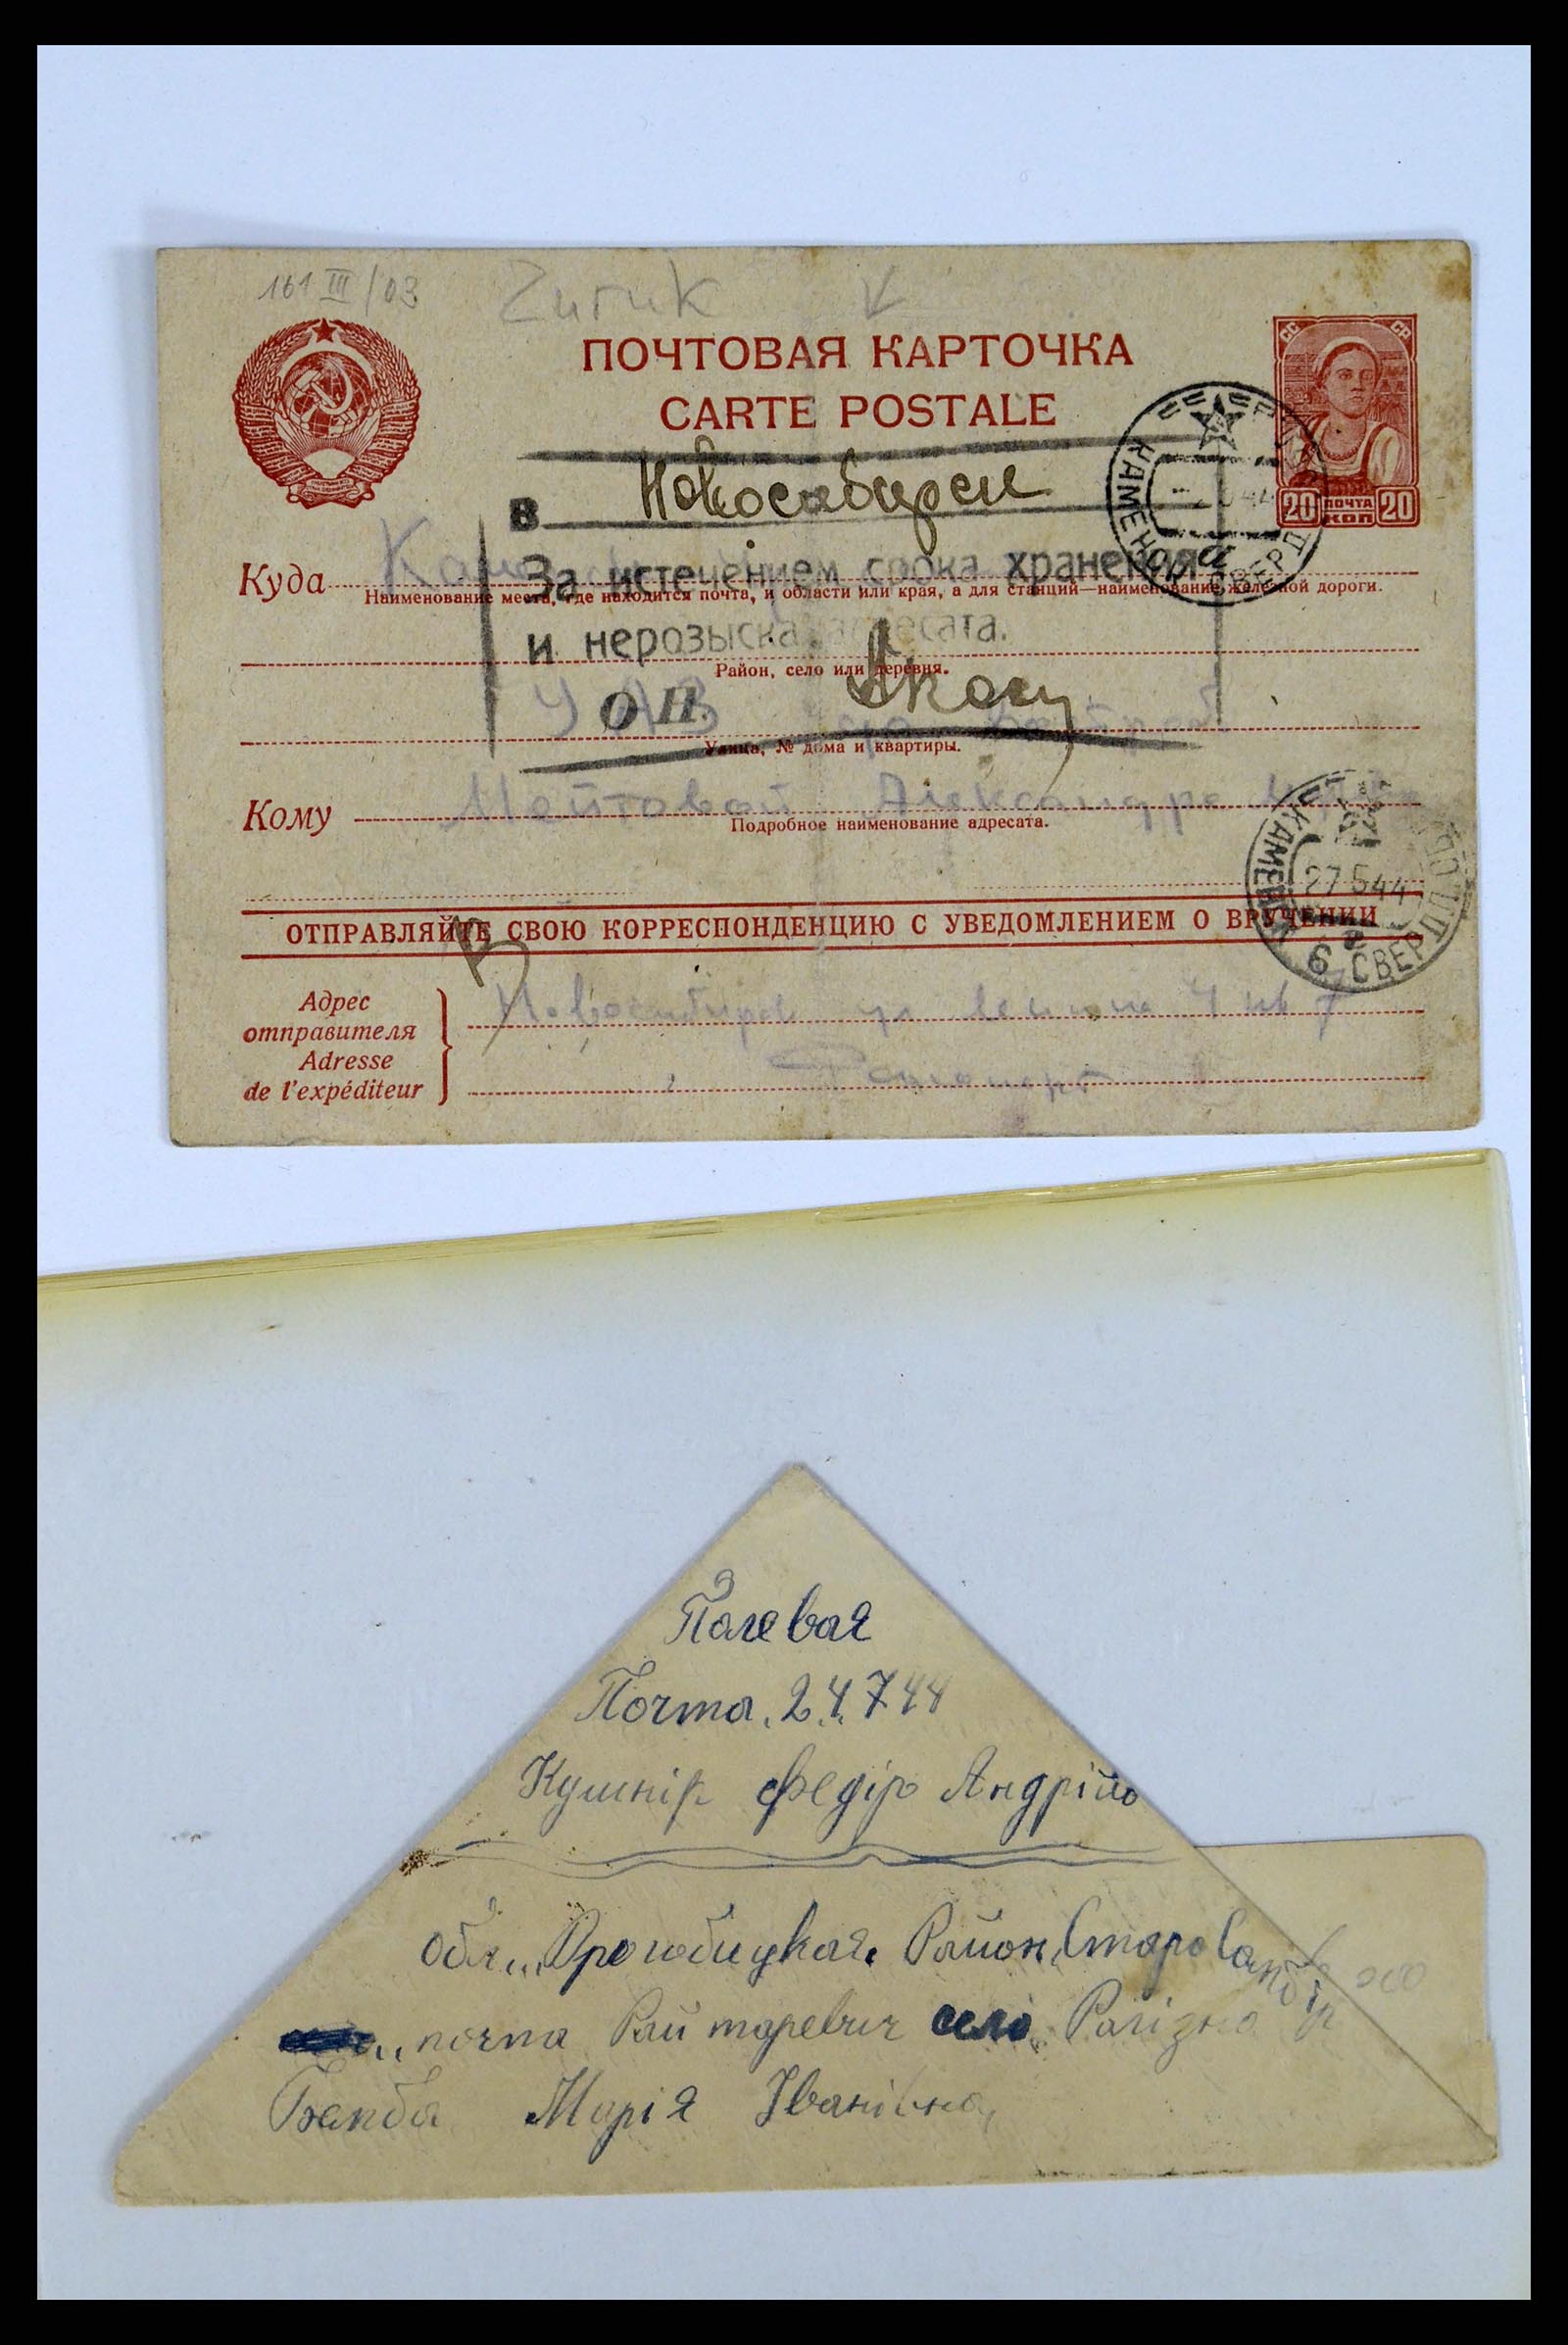 161 III/03 Zurück
ПОЧТОВАЯ КАРТОЧКА
CARTE POSTALE
СС СР
20 ПОЧТА КОП 20
в Новосибирск
Куда
За истечением срока хранения
Наименование места, где находится почта, и области или края, а для станций—наименование железной дороги.
и нерозыска адресата.
Район, село или деревня.
О П.
УАЗ
Улица, № дома и квартиры.
Кому
Александре
Подробное наименование адресата.
КАМЕНСК СВЕРДЛ
27 5 44
ОТПРАВЛЯЙТЕ СВОЮ КОРРЕСПОНДЕНЦИЮ С УВЕДОМЛЕНИЕМ О ВРУЧЕНИИ
Адрес
отправителя
Adresse
de l'expéditeur
Новосибирск ул Ленина 4 кв 7
Полевая
Почта. 24744
Кушнір Федір Андрійо
Обл. „Дрогобицкая. Район, Старо Самбір
„почта Райтаревич село „Ралізно
Бемба Марія Іванівна,